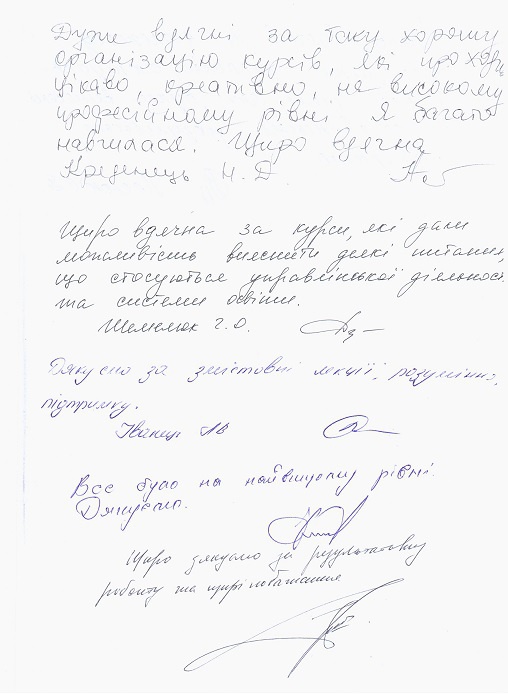 Дуже вдячні за таку хорошу
організацію курсів, які проходять
цікаво, креативно, на високому
професійному рівні Я багато
навчилася. Щиро вдячна
Креденець Н. Д.
Щиро вдячна за курси, які дали
можливість вияснити деякі питання,
що стосуються управлінської діяльності
та системи освіти.
Шемелюк Г. О.
Дякуємо за змістовні лекції, розуміння,
підтримку.
Іванец
Все було на найвищому рівні.
Дякуємо.
Щиро дякуємо за результативну
роботу та щирі